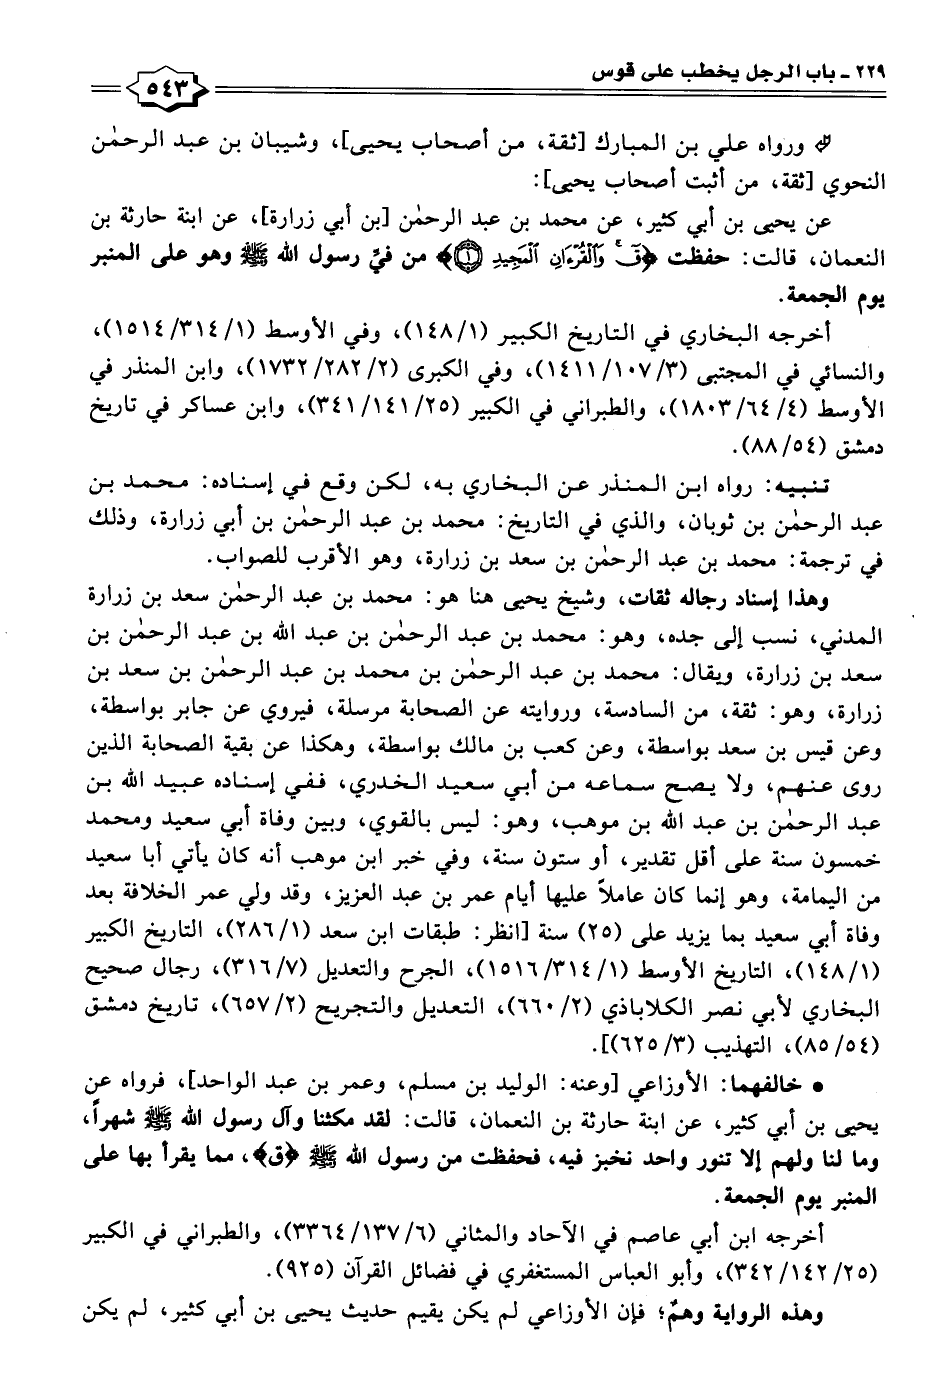 ٢٢٩ - باب الرجل يخطب على قوس
٥٤٣
ورواه علي بن المبارك [ثقة، من أصحاب يحيى]، وشيبان بن عبد الرحمٰن
النحوي [ثقة، من أثبت أصحاب يحيى]:
عن يحيى بن أبي كثير، عن محمد بن عبد الرحمٰن [بن أبي زرارة]، عن ابنة حارثة بن
النعمان، قالت: حفظت ﴿قٓ وَٱلْقُرْءَانِ ٱلْمَجِيدِ ۝١﴾ من فيّ رسول الله ﷺ وهو على المنبر
يوم الجمعة.
أخرجه البخاري في التاريخ الكبير (١٤٨/١)، وفي الأوسط (١٥١٤/٣١٤/١)،
والنسائي في المجتبى (١٤١١/١٠٧/٣)، وفي الكبرى (١٧٣٢/٢٨٢/٢)، وابن المنذر في
الأوسط (١٨٠٣/٦٤/٤)، والطبراني في الكبير (٣٤١/١٤١/٢٥)، وابن عساكر في تاريخ
دمشق (٨٨/٥٤).
تنبيه: رواه ابن المنذر عن البخاري به، لكن وقع في إسناده: محمد بن
عبد الرحمٰن بن ثوبان، والذي في التاريخ: محمد بن عبد الرحمٰن بن أبي زرارة، وذلك
في ترجمة: محمد بن عبد الرحمٰن بن سعد بن زرارة، وهو الأقرب للصواب.
وهذا إسناد رجاله ثقات، وشيخ يحيى هنا هو: محمد بن عبد الرحمٰن سعد بن زرارة
المدني، نسب إلى جده، وهو: محمد بن عبد الرحمٰن بن عبد الله بن عبد الرحمٰن بن
سعد بن زرارة، ويقال: محمد بن عبد الرحمٰن بن محمد بن عبد الرحمٰن بن سعد بن
زرارة، وهو: ثقة، من السادسة، وروايته عن الصحابة مرسلة، فيروي عن جابر بواسطة،
وعن قيس بن سعد بواسطة، وعن كعب بن مالك بواسطة، وهكذا عن بقية الصحابة الذين
روى عنهم، ولا يصح سماعه من أبي سعيد الخدري، ففي إسناده عبيد الله بن
عبد الرحمٰن بن عبد الله بن موهب، وهو: ليس بالقوي، وبين وفاة أبي سعيد ومحمد
خمسون سنة على أقل تقدير، أو ستون سنة، وفي خبر ابن موهب أنه كان يأتي أبا سعيد
من اليمامة، وهو إنما كان عاملاً عليها أيام عمر بن عبد العزيز، وقد ولي عمر الخلافة بعد
وفاة أبي سعيد بما يزيد على (٢٥) سنة [انظر: طبقات ابن سعد (٢٨٦/١)، التاريخ الكبير
(١٤٨/١)، التاريخ الأوسط (١٥١٦/٣١٤/١)، الجرح والتعديل (٣١٦/٧)، رجال صحيح
البخاري لأبي نصر الكلاباذي (٦٦٠/٢)، التعديل والتجريح (٦٥٧/٢)، تاريخ دمشق
(٨٥/٥٤)، التهذيب (٦٢٥/٣)].
• خالفهما: الأوزاعي [وعنه: الوليد بن مسلم، وعمر بن عبد الواحد]، فرواه عن
يحيى بن أبي كثير، عن ابنة حارثة بن النعمان، قالت: لقد مكثنا وآل رسول الله ﷺ شهراً،
وما لنا ولهم إلا تنور واحد نخبز فيه، فحفظت من رسول الله ﷺ ﴿ق﴾، مما يقرأ بها على
المنبر يوم الجمعة.
أخرجه ابن أبي عاصم في الآحاد والمثاني (٣٣٦٤/١٣٧/٦)، والطبراني في الكبير
(٣٤٢/١٤٢/٢٥)، وأبو العباس المستغفري في فضائل القرآن (٩٢٥).
وهذه الرواية وهمٌ؛ فإن الأوزاعي لم يكن يقيم حديث يحيى بن أبي كثير، لم يكن